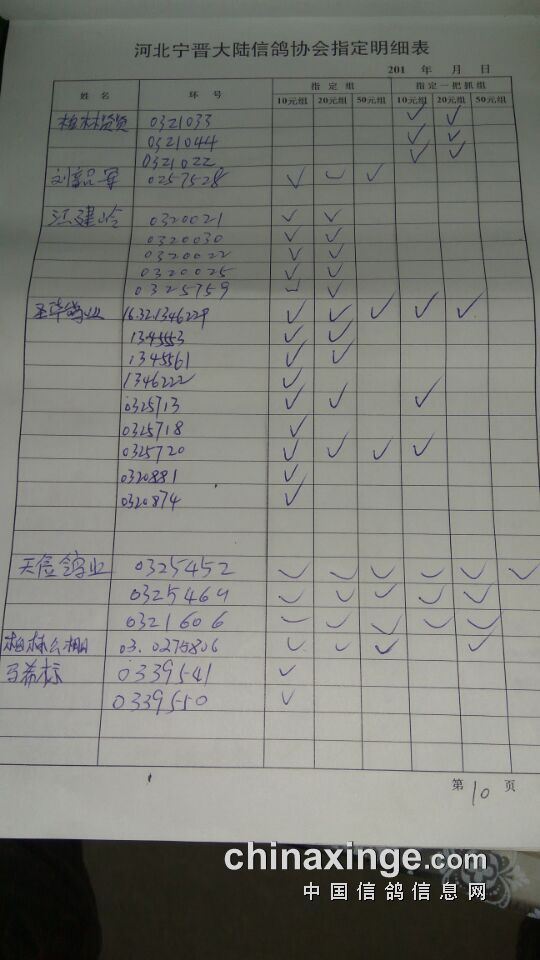 河北宁晋大陆信鸽协会指定明细表
201 年 月 日
姓 名 环 号 指 定 组 指定一把抓组
10元组 20元组 50元组 10元组 20元组 50元组
0321033 ✓ ✓
0321044 ✓ ✓
0321022 ✓ ✓
0257528 ✓ ✓ ✓
江建岭 0320021 ✓ ✓
0320030 ✓ ✓
0320022 ✓ ✓
0320025 ✓ ✓
0325759 ✓ ✓
鸽业 16.32.1346229 ✓ ✓ ✓ ✓ ✓
1345553 ✓ ✓
1345561 ✓ ✓
1346222 ✓
0325713 ✓ ✓ ✓
0325718 ✓
0325720 ✓ ✓ ✓ ✓
0320881 ✓
0320874 ✓
天位鸽业 0325452 ✓ ✓ ✓ ✓ ✓ ✓
0325464 ✓ ✓ ✓ ✓ ✓
0321606 ✓ ✓ ✓ ✓ ✓
03.0275806 ✓ ✓ ✓ ✓
马希标 0339541 ✓
0339550 ✓
第 10 页
chinaxinge.com
中国信鸽信息网